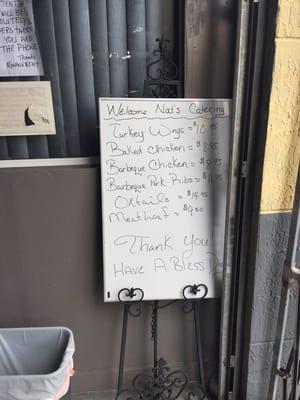 TENTED
WILL BE
OLUTELY
PERS TAKEN
YOU ARE
THE PHONE
Thanks
MANAGEMENT
Welcome Nat's Catering
Turkey Wings = $10.95
Baked Chicken = $8.95
Barbeque Chicken = $9.95
Barbeque Pork Ribs =
Oxtails = $14.95
Meatloaf = $9.00
Thank You
Have A Bless